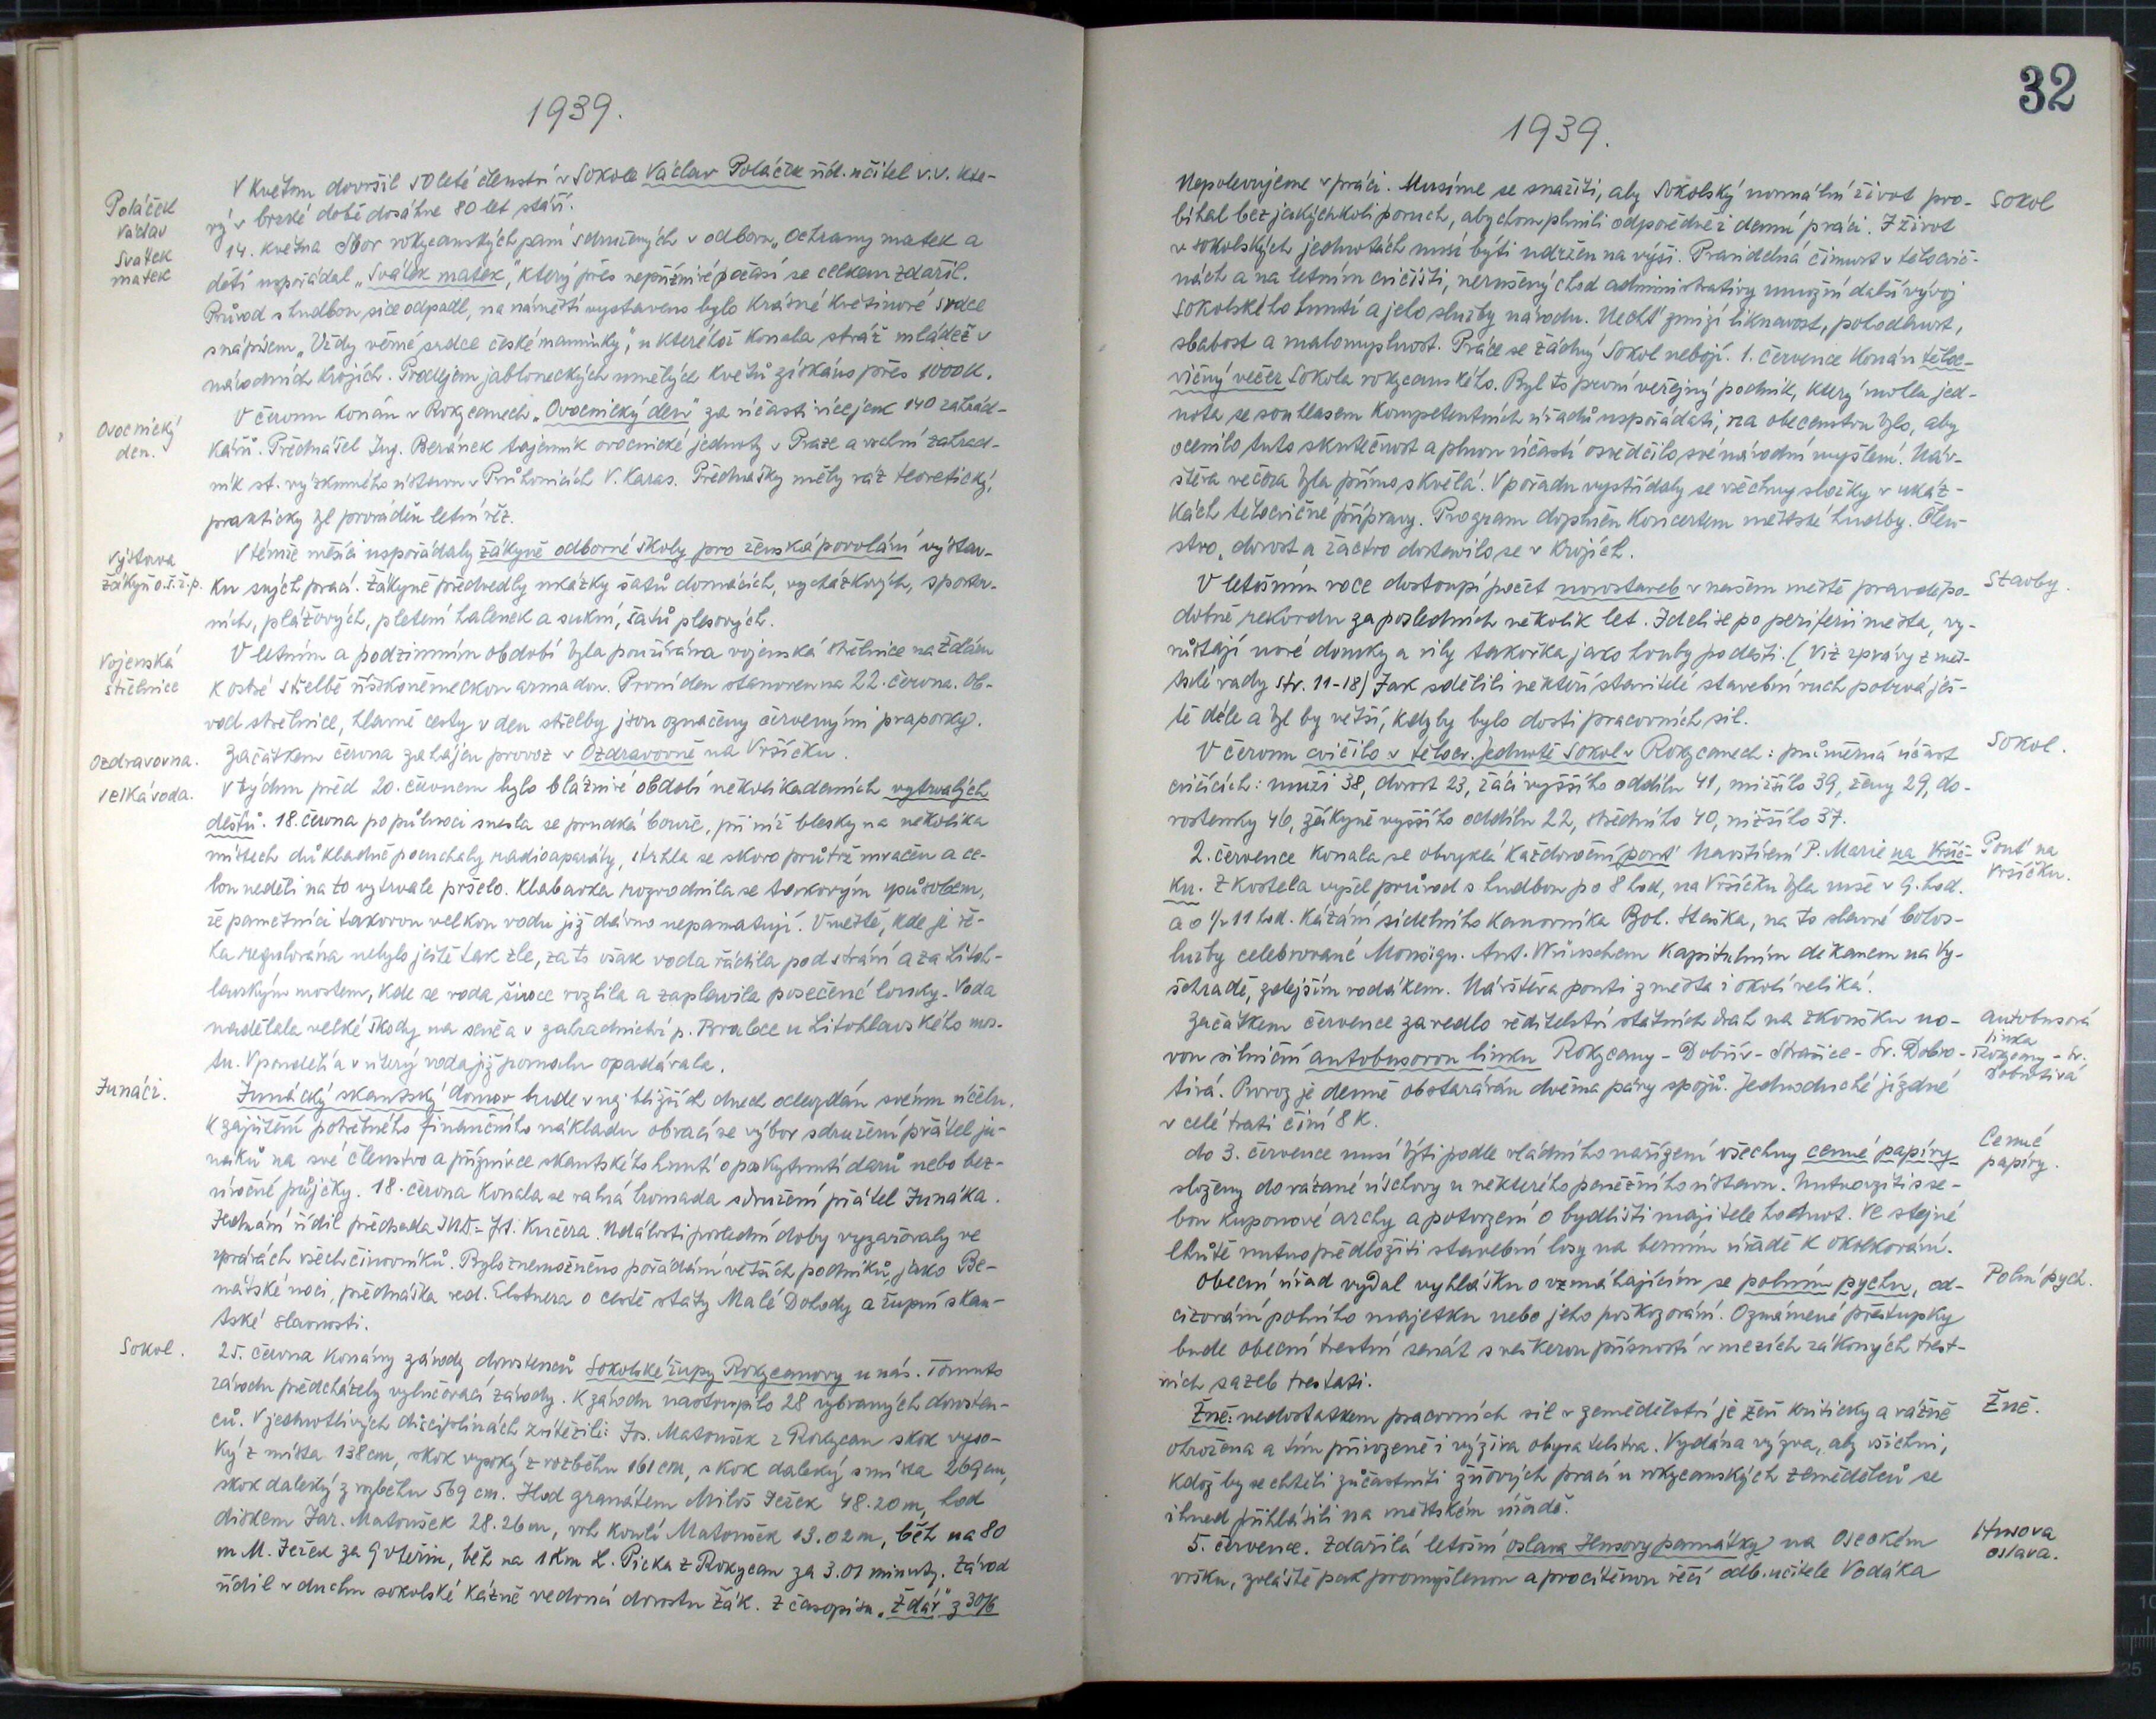 1939.
V květnu dovršil 50 leté členství v Sokole Václav Poláček říd. učitel v.v. kte-
Poláček
Václav
rý v brzké době dosáhne 80 let stáří.
Svátek
matek
14. května Sbor rokycanských paní sdružených v odboru „Ochrany matek a
dětí uspořádal „Svátek matek", který přes nepříznivé počasí se celkem zdařil.
Průvod s hudbou sice odpadl, na náměstí vystaveno bylo krásné květinové srdce
s nápisem „Vždy věrné srdce české maminky", u kteréhož konala stráž mládež v
národních krojích. Prodejem jabloneckých umělých květů získáno přes 1000 K.
Ovocnický
den.
V červnu konán v Rokycanech „Ovocnický den" za účasti více jak 140 zahrád-
kářů. Přednášel Ing. Beránek tajemník ovocnické jednoty v Praze a vrchní zahrad-
ník st. výzkumného ústavu v Průhonicích V. Karas. Přednášky měly ráz teoretický,
prakticky byl prováděn letní řez.
Výstava
žákyň o.š.ž.p.
V témže měsíci uspořádaly žákyně odborné školy pro ženská povolání výstav-
ku svých prací. Žákyně předvedly ukázky šatů domácích, vycházkových, sportov-
ních, plážových, pletení halenek a sukní, šatů plesových.
Vojenská
střelnice
V letním a podzimním období byla používána vojenská střelnice na Ždáru
k ostré střelbě říškoněmeckou armádou. První den stanoven na 22. června. Ob-
vod střelnice, hlavně cesty v den střelby jsou označeny červenými praporky.
Ozdravovna.
Začátkem června zahájen provoz v Ozdravovně na Vršíčku.
Velká voda.
V týdnu před 20. červnem bylo bláznivé období několikadenních vytrvalých
dešťů. 18. června po půlnoci snesla se prudká bouře, při níž blesky na několika
místech důkladně pocuchaly radioaparáty, strhla se skoro průtrž mračen a ce-
lou neděli na to vytrvale pršelo. Klabavka rozvodnila se takovým způsobem,
že pamětníci takovou velkou vodu již dávno nepamatují. V městě, kde je ře-
ka regulována nebylo ještě tak zle, za to však voda řádila pod strání a za Litoh-
lavským mostem, kde se voda široce rozlila a zaplavila posečené louky. Voda
nadělala velké škody na seně a v zahradnictví p. Brabce u Litohlavského mos-
tu. V pondělí a v úterý voda již pomalu opadávala.
Junáci.
Junácký skautský domov bude v nejbližších dnech odevzdán svému účelu.
K zajištění potřebného finančního nákladu obrací se výbor sdružení přátel ju-
náků na své členstvo a příznivce skautského hnutí o poskytnutí darů nebo bez-
úročné půjčky. 18. června konala se valná hromada sdružení přátel Junáka.
Jednání řídil předseda JUDr. Jos. Kučera. Události poslední doby vyzařovaly ve
zprávách všech činovníků. Bylo znemožněno pořádání větších podniků, jako Be-
nátské noci, přednáška red. Elstnera o cestě státy Malé Dohody a župní skau-
tské slavnosti.
Sokol.
25. června konány závody dorostenců Sokolské župy Rokycanovy u nás. Tomuto
závodu předcházely vylučovací závody. K závodu nastoupilo 28 vybraných dorosten-
ců. V jednotlivých disciplínách zvítězili: Jos. Matoušek z Rokycan skok vyso-
ký z místa 138 cm, skok vysoký z rozběhu 161 cm, skok daleký s místa 269 cm,
skok daleký z rozběhu 569 cm. Hod granátem Miloš Ježek 48.20 m, hod
diskem Jar. Matoušek 28.26 m, vrh koulí Matoušek 13.02 m, běh na 80
m M. Ježek za 9 vteřin, běh na 1 km L. Picka z Rokycan za 3.01 minuty. Závod
řídil v duchu sokolské kázně vedoucí dorostu Žák. Z časopisu „Žďár" z 30/6
32
1939.
Sokol
Nepolevujeme v práci. Musíme se snažiti, aby Sokolský normální život pro-
bíhal bez jakýchkoli poruch, abychom plnili odpovědně i denní práci. I život
v sokolských jednotách musí býti udržen na výši. Pravidelná činnost v tělocvič-
nách a na letním cvičišti, nerušený chod administrativy umožní další vývoj
Sokolského hnutí a jeho služby národu. Nechť zmizí liknavost, pohodlnost,
slabost a malomyslnost. Práce se žádný Sokol nebojí. 1. července konán těloc-
vičný večer Sokola rokycanského. Byl to první veřejný podnik, který mohla jed-
nota se souhlasem kompetentních úřadů uspořádati, na obecenstvu bylo, aby
ocenilo tuto skutečnost a plnou účastí osvědčilo své národní myšlení. Náv-
štěva večera byla přímo skvělá. V pořadu vystřídaly se všechny složky v ukáz-
kách tělocvičné přípravy. Program doplněn koncertem městské hudby. Člen-
stvo, dorost a žactvo dostavilo se v krojích.
Stavby.
V letošním roce dostoupí počet novostaveb v našem městě pravděpo-
dobně rekordu za posledních několik let. Jdeli se po periferii města, vy-
růstají nové domky a vily takořka jako houby po dešti. (Viz zprávy z měst-
ské rady str. 11-18) Jak sdělili někteří stavitelé stavební ruch potrvá ješ-
tě déle a byl by větší, kdyby bylo dosti pracovních sil.
Sokol.
V červnu cvičilo v tělocv. Jednotě Sokol v Rokycanech: průměrná účast
cvičících: muži 38, dorost 23, žáci vyššího oddílu 41, nižšího 39, ženy 29, do-
rostenky 46, žákyně vyššího oddílu 22, středního 40, nižšího 37.
Pouť na
Vršíčku.
2. července konala se obvyklá každoroční pouť Navštívení P. Marie na Vršíč-
ku. Z kostela vyšel průvod s hudbou po 8 hod, na Vršíčku byla mše v 9. hod.
a o ½ 11 hod. kázání sídelního kanovníka Boh. Staška, na to slavné bohos-
lužby celebrované Monsign. Ant. Wünschem kapitulním děkanem na Vy-
šehradě, zdejším rodákem. Návštěva pouti z města i okolí veliká.
Autobusová
linka
Rokycany - Sv.
Dobrotivá
Začátkem července zavedlo ředitelství státních drah na zkoušku no-
vou silniční autobusovou linku Rokycany - Dobřív - Strašice - Sv. Dobro-
tivá. Provoz je denně obstaráván dvěma páry spojů. Jednoduché jízdné
v celé trati činí 8 K.
Cenné
papíry.
do 3. července musí býti podle vládního nařízení všechny cenné papíry
složeny do vázané úschovy u některého peněžního ústavu. Nutno vzíti s se-
bou kuponové archy a potvrzení o bydlišti majitele hodnot. Ve stejné
lhůtě nutno předložiti stavební losy na berním úřadě k okolkování.
Polní pych.
Obecní úřad vydal vyhlášku o vzmáhajícím se polním pychu, od-
cizování polního majetku nebo jeho poškozování. Oznámené přestupky
bude obecní trestní senát s veškerou přísností v mezích zákonných trest-
ních sazeb trestati.
Žně.
Žně: nedostatkem pracovních sil v zemědělství je žeň kriticky a vážně
ohrožena a tím přirozeně i výživa obyvatelstva. Vydána výzva, aby všichni,
kdož by se chtěli zúčastniti žňových prací u rokycanských zemědělců se
ihned přihlásili na městském úřadě.
Husova
oslava.
5. července. Zdařilá letošní oslava Husovy památky na Oseckém
vršku, zvláště pak promyšlenou a procítěnou řečí odb. učitele Vodáka